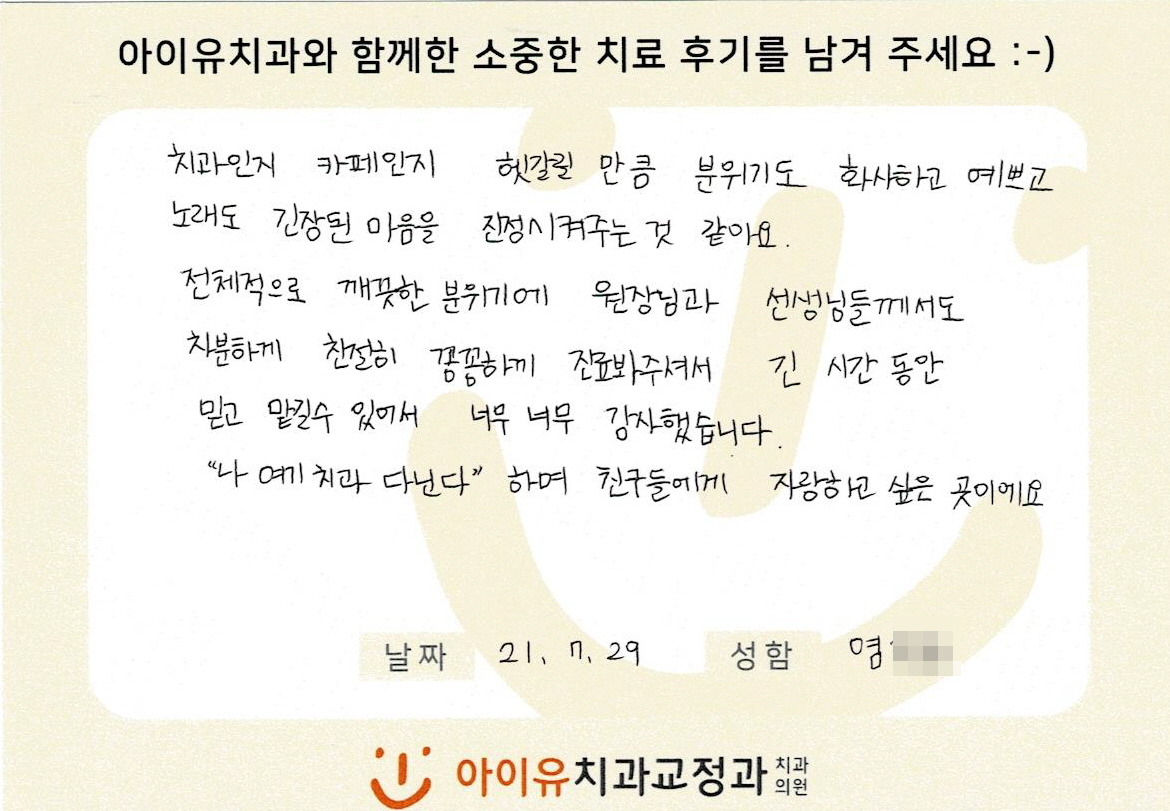 아이유치과와 함께한 소중한 치료 후기를 남겨 주세요 :-)
치과인지 카페인지 헷갈릴 만큼 분위기도 화사하고 예쁘고
노래도 긴장된 마음을 진정시켜주는 것 같아요.
전체적으로 깨끗한 분위기에 원장님과 선생님들께서도
차분하게 친절히 꼼꼼하께 진료봐주셔서 긴 시간 동안
믿고 맡길수 있어서 너무 너무 감사했습니다.
"나 여기 치과 다닌다" 하며 친구들에게 자랑하고 싶은 곳이에요
날짜 21. 7. 29 성함 염
아이유치과교정과 치과
의원